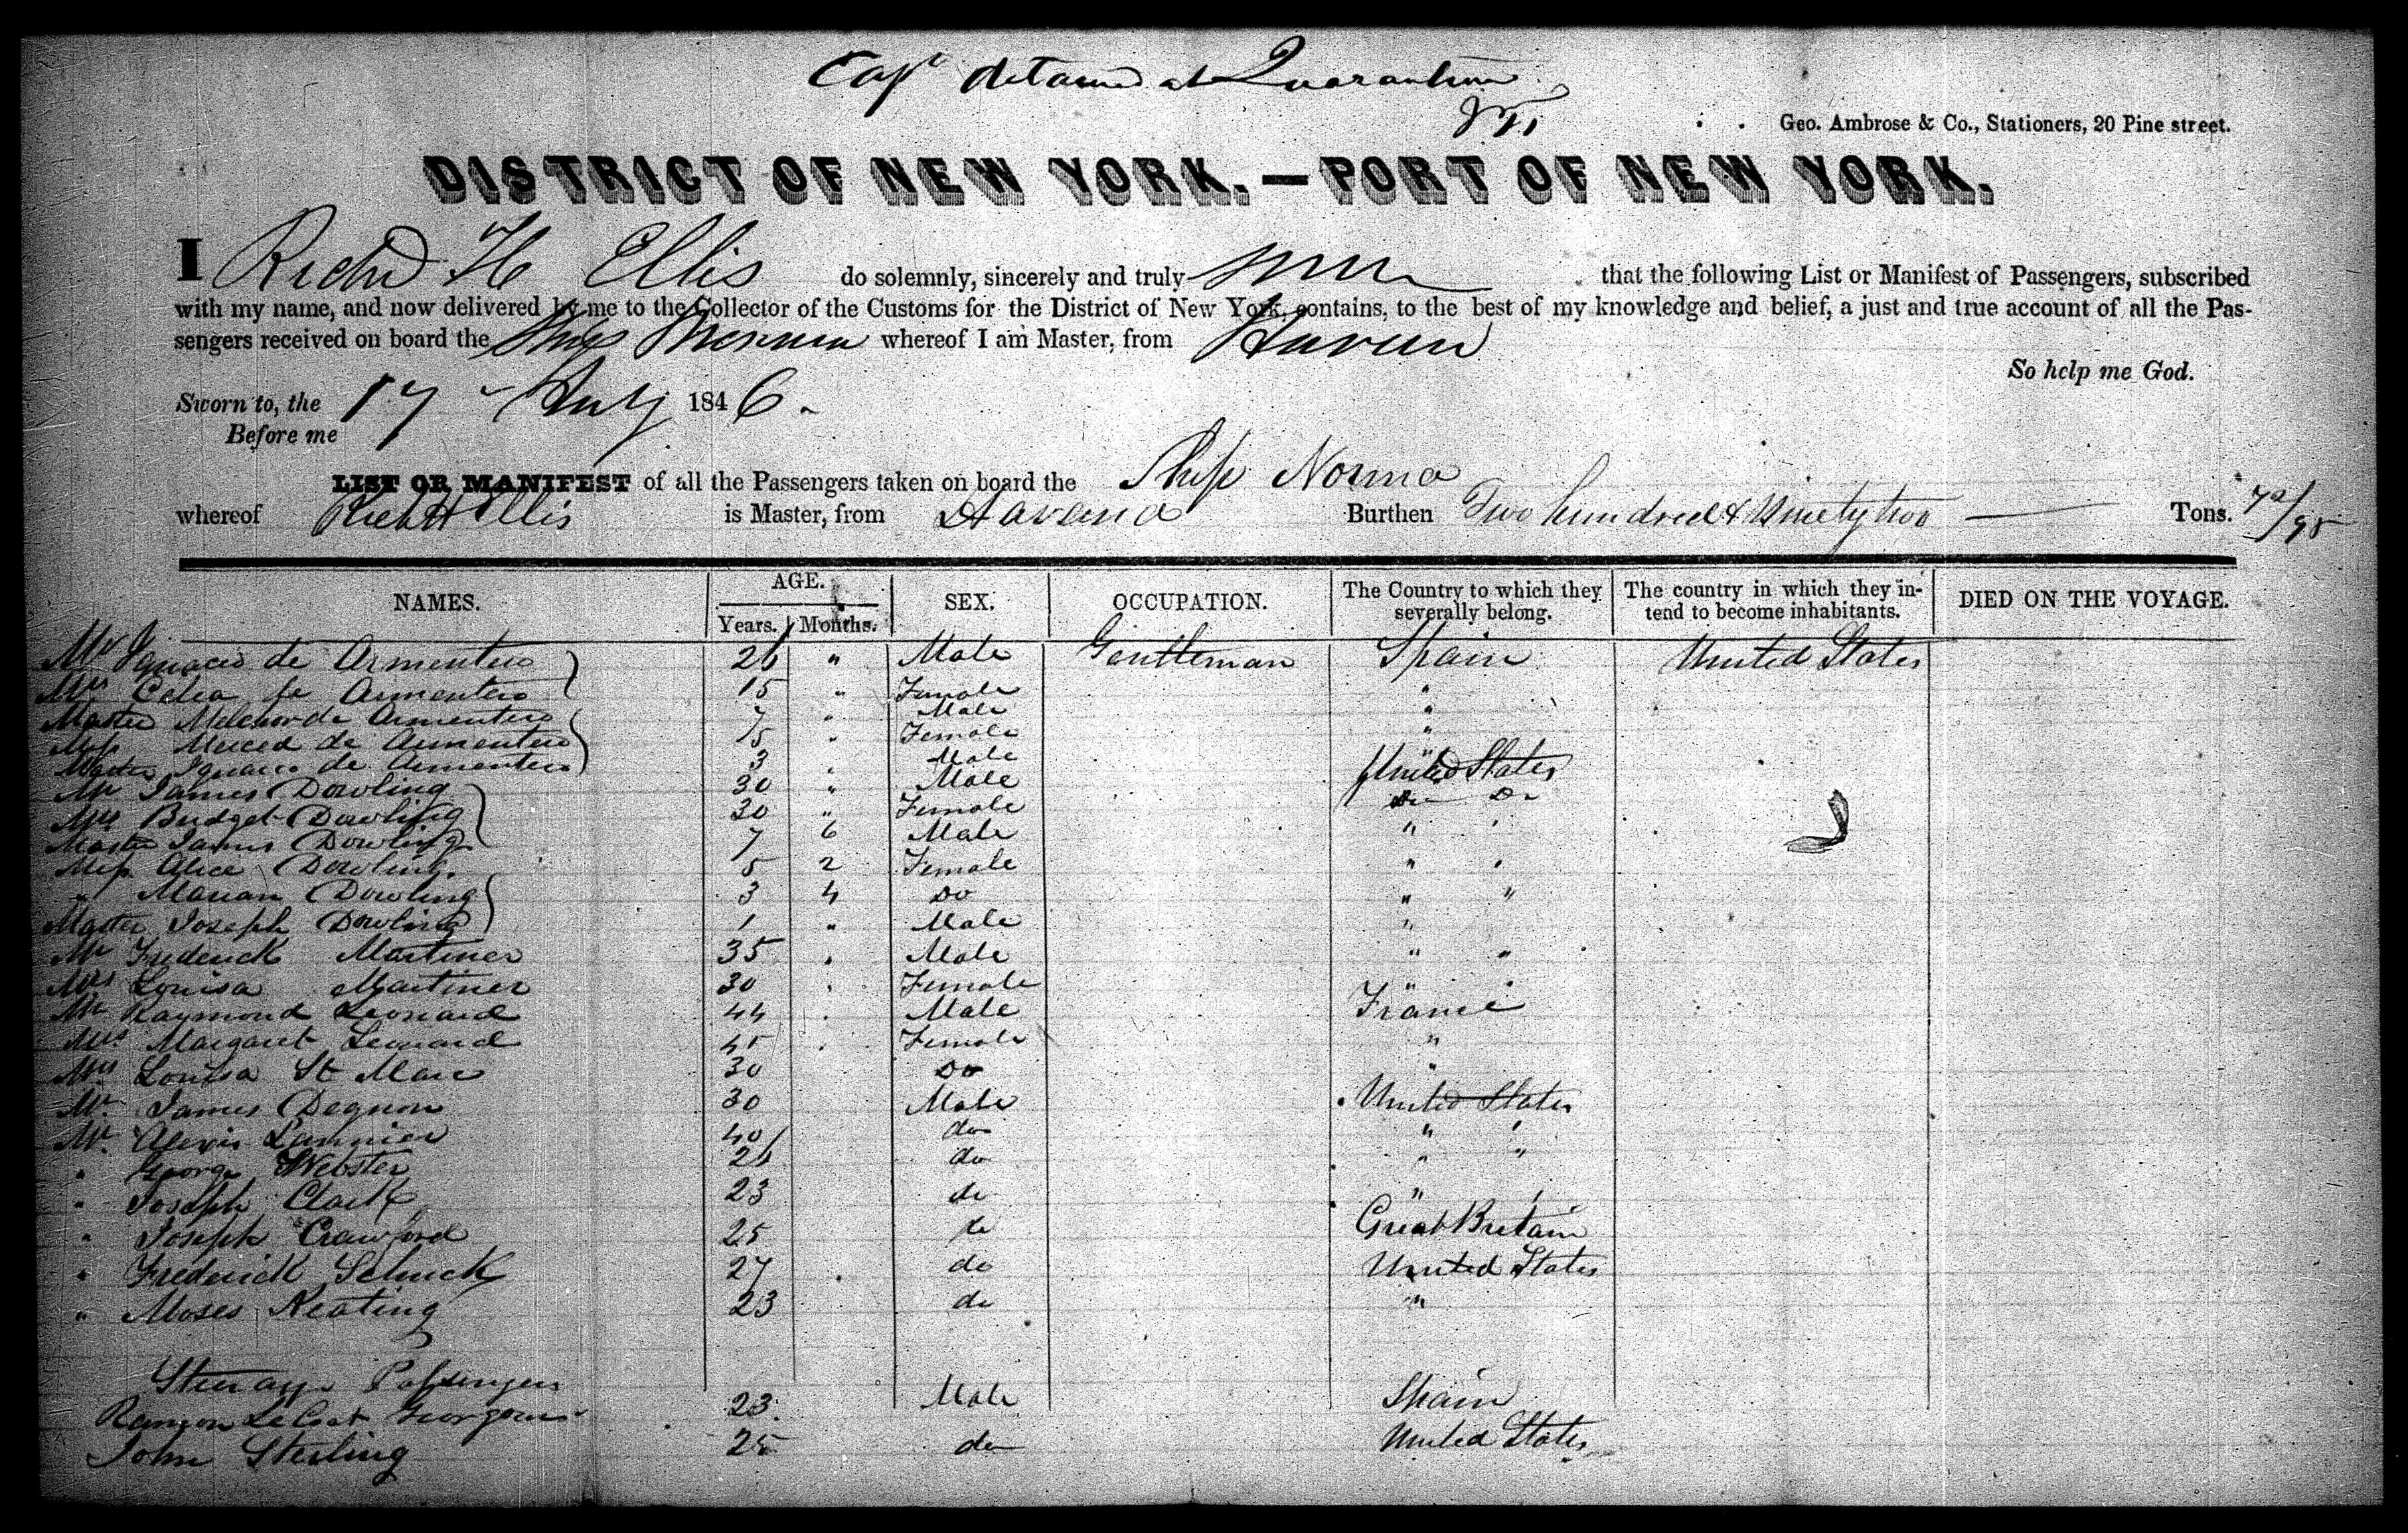 Capt detained at Quarantine
Geo. Ambrose & Co., Stationers, 20 Pine street.
DISTRICT OF NEW YORK.—PORT OF NEW YORK.
I Richd H Ellis do solemnly, sincerely and truly that the following List or Manifest of Passengers, subscribed
with my name, and now delivered by me to the Collector of the Customs for the District of New York, contains, to the best of my knowledge and belief, a just and true account of all the Pas-
sengers received on board the Ship Norma whereof I am Master, from Havana
So help me God.
Sworn to, the 17 July 1846.
Before me
LIST OR MANIFEST of all the Passengers taken on board the Ship Norma
whereof Rich H Ellis is Master, from Havana Burthen Two hundred & Ninety two — Tons. 72/95
NAMES. AGE. Years. Months. SEX. OCCUPATION. The Country to which they severally belong. The country in which they in-tend to become inhabitants. DIED ON THE VOYAGE.
Mr Ignacio de Armentero 26 " Male Gentleman Spain United States
Mrs Celia de Armentero 15 " Female "
Master Melchor de Armentero 7 " Male "
Miss Merced de Armentero 5 " Female "
Master Ignacio de Armentero 3 " Male "
Mr James Dowling 30 " Male United States
Mrs Bridget Dowling 30 " Female Do Do
Master James Dowling 7 6 Male " "
Miss Alice Dowling 5 2 Female " "
" Marian Dowling 3 4 Do " "
Master Joseph Dowling 1 " Male "
Mr Frederick Martiner 35 " Male " "
Mrs Louisa Martiner 30 " Female " "
Mr Raymond Leonard 44 " Male France
Mrs Margaret Leonard 45 " Female "
Mrs Louisa St Marc 30 Do "
Mr. James Degnon 30 Male United States
Mr. Alexis Lannier 40 do " "
" George Webster 26 do " "
" Joseph Clark 23 do " "
" Joseph Crawford 25 do Great Britain
" Frederick Schuck 27 do United States
" Moses Keating 23 do "
Steerage Passengers
Ramon 23 Male Spain
John Sterling 25 do United States